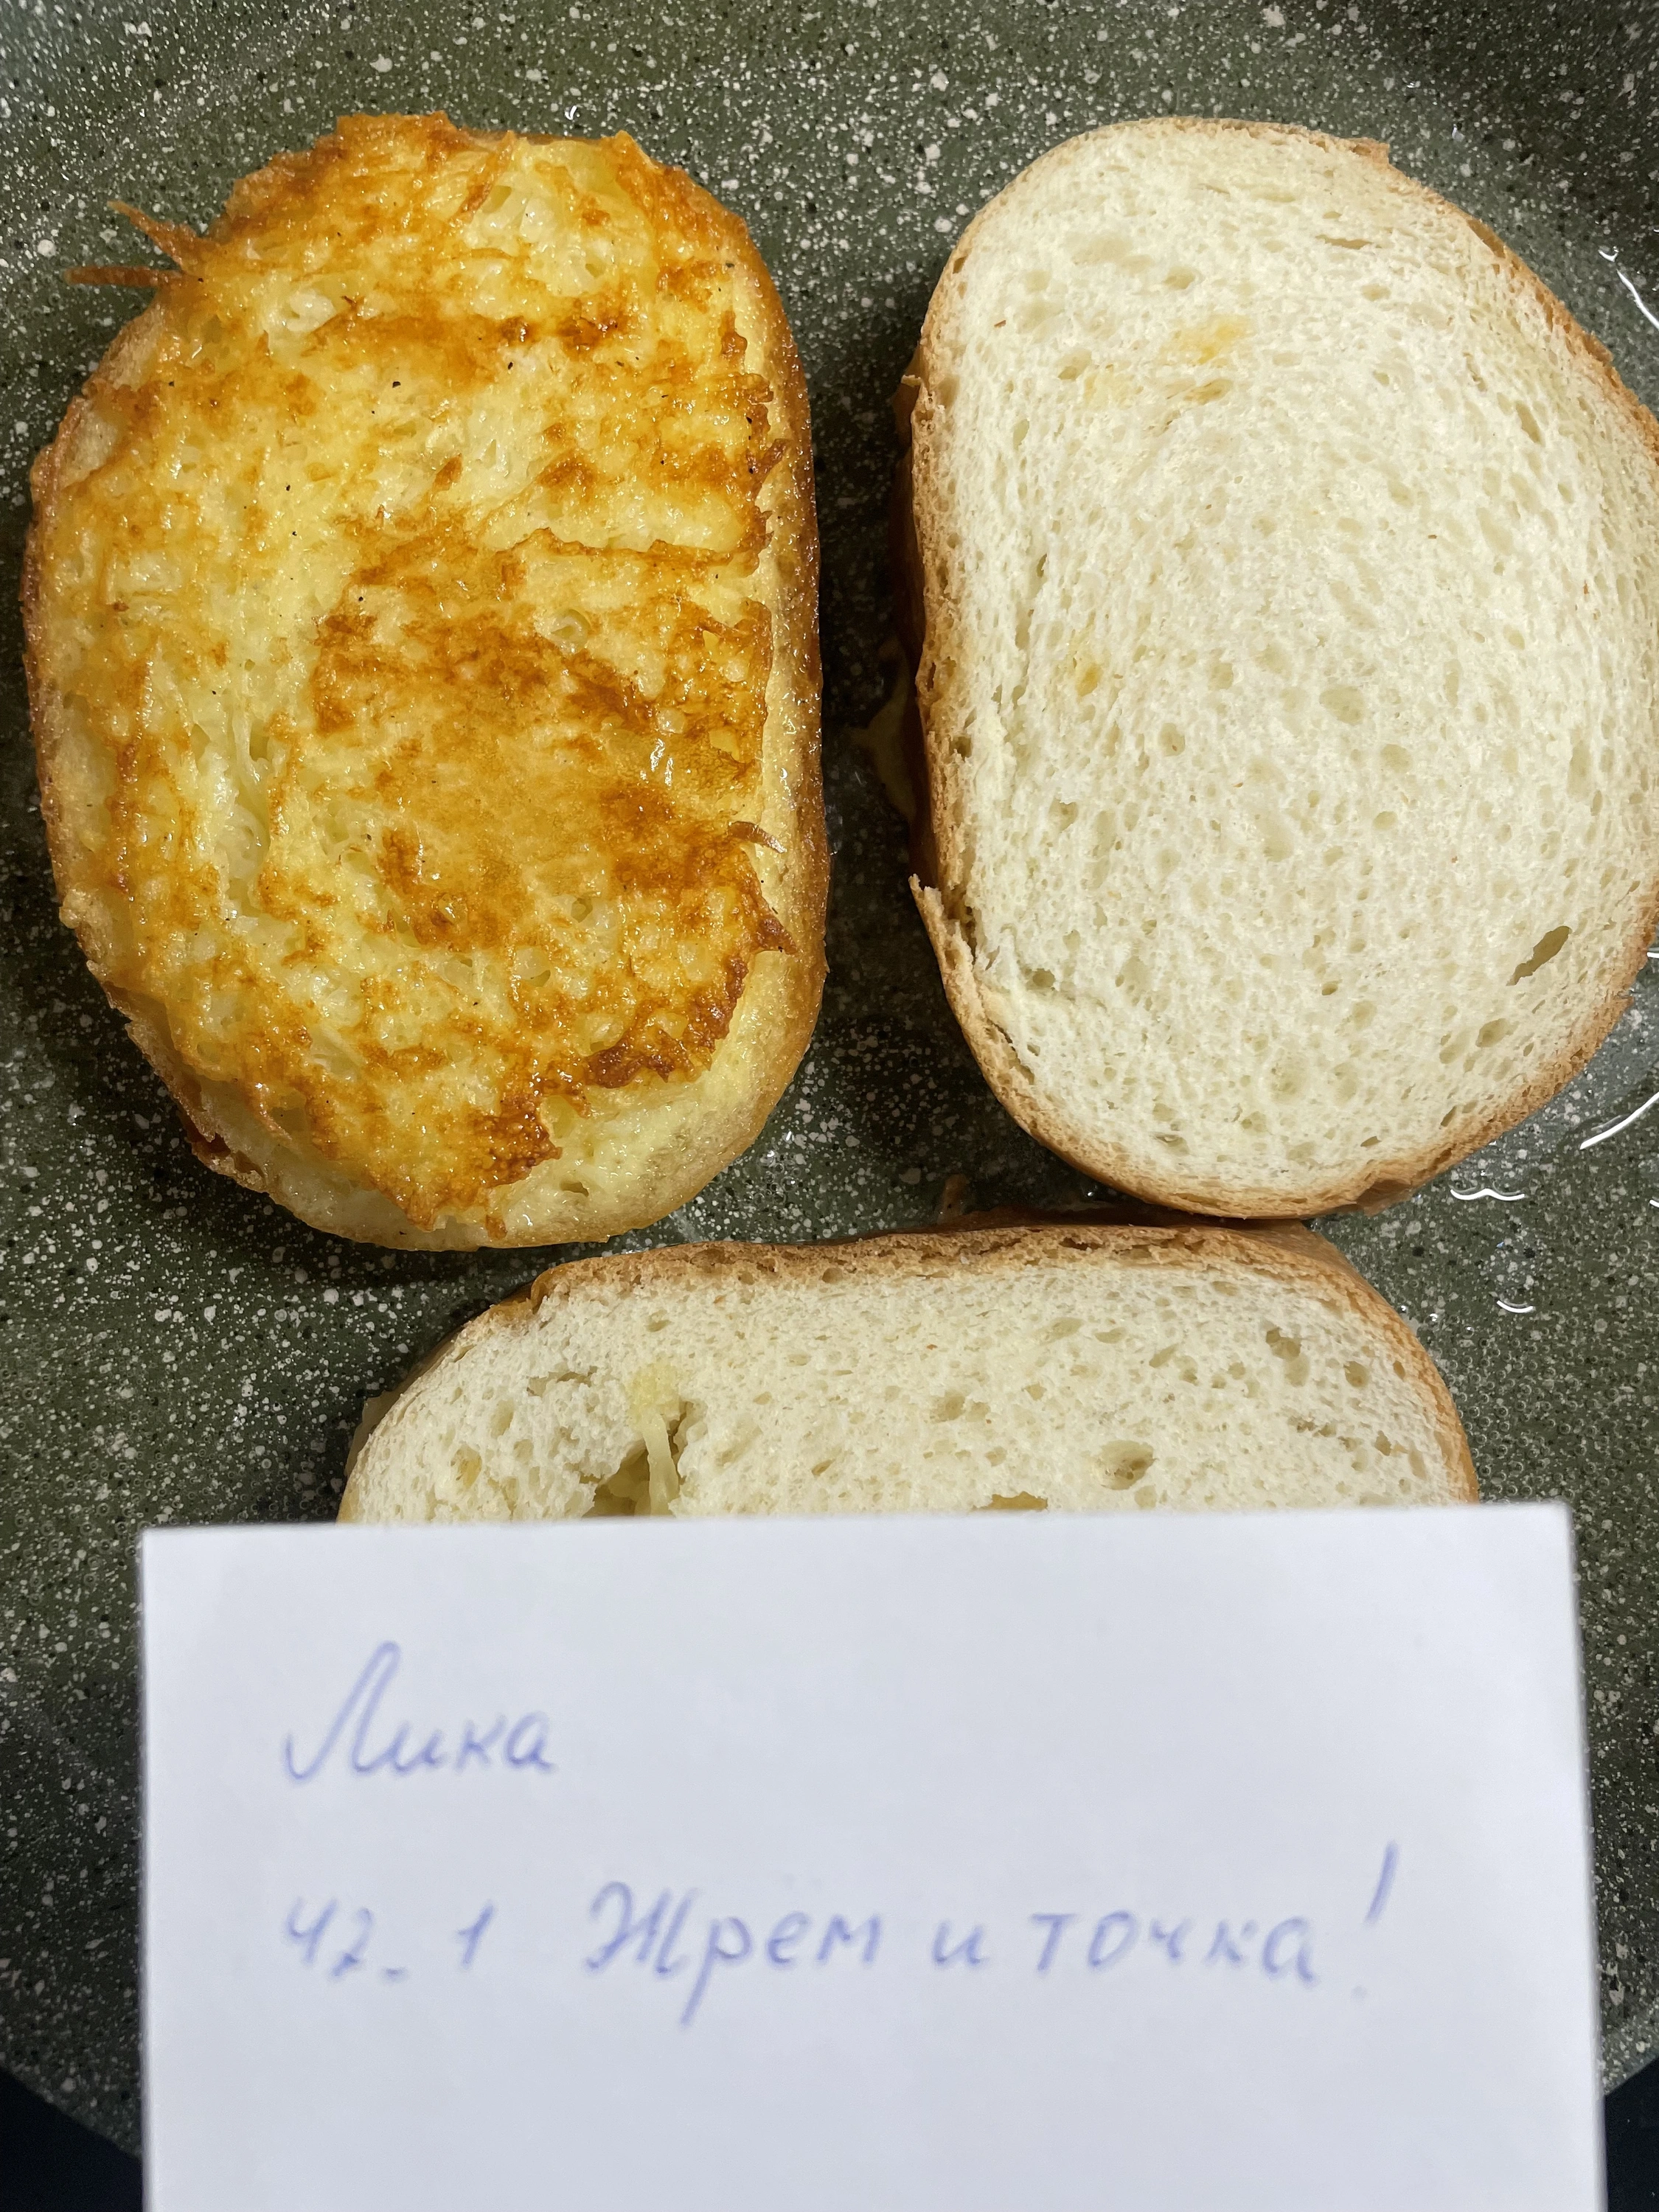 Лика
42.1 Жрем и точка!